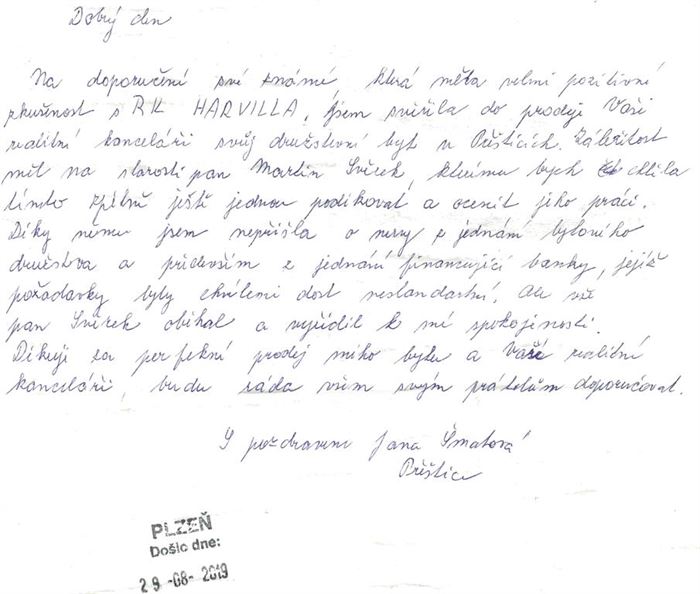 Dobrý den
Na doporučení své známé, která měla velmi pozitivní
zkušenost s RK HARVILLA, jsem svěřila do prodeje Vaší
realitní kanceláři svůj družstevní byt v Přešticích. Záležitost
měl na starosti pan Martin Svěrek, kterému bych chtěla
tímto zpětně ještě jednou poděkovat a ocenit jeho práci.
Díky němu jsem nepřišla o nervy z jednání bytového
družstva a především z jednání financující banky, jejíž
požadavky byly chvílemi dost nestandartní. Ale vše
pan Svěrek oběhal a vyřídil k mé spokojenosti.
Děkuji za perfektní prodej mého bytu a Vaší realitní
kanceláři, budu ráda všem svým přátelům doporučovat.
S pozdravem Jana Šmatová
Přeštice
PLZEŇ
Došlo dne:
29 -08- 2019